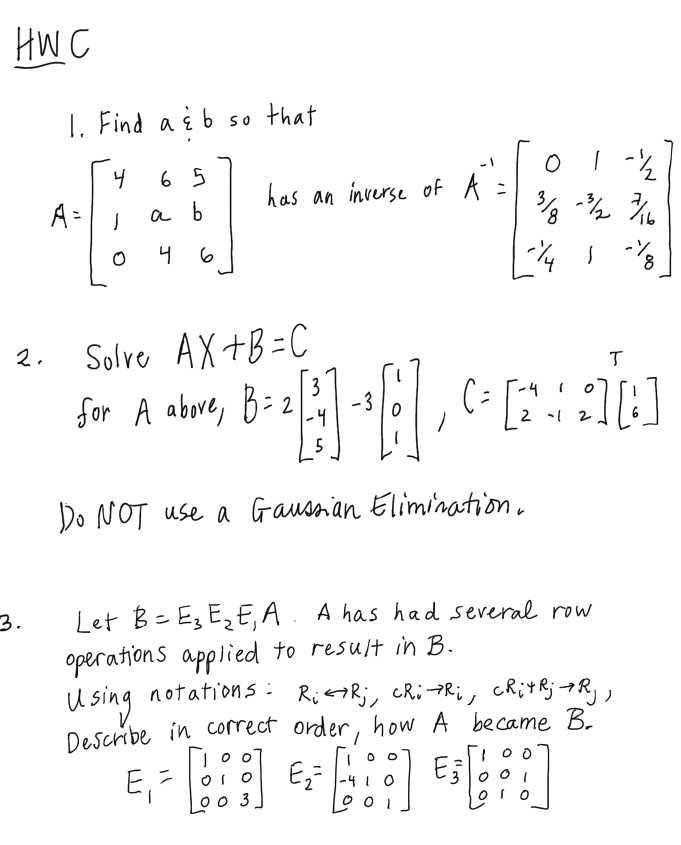 HW C
1. Find a & b so that
A = [4 6 5; 1 a b; 0 4 6] has an inverse of A⁻¹ = [0 1 -1/2; 3/8 -3/2 7/16; -1/4 1 -1/8]
2. Solve AX+B=C
for A above, B = 2[3; -4; 5] - 3[1; 0; 1], C = [-4 1 0; 2 -1 2]ᵀ [1; 6]
Do NOT use a Gaussian Elimination.
3. Let B = E₃E₂E₁A. A has had several row
operations applied to result in B.
Using notations: Rᵢ↔Rⱼ, cRᵢ→Rᵢ, cRᵢ+Rⱼ→Rⱼ,
Describe in correct order, how A became B.
E₁ = [1 0 0; 0 1 0; 0 0 3] E₂ = [1 0 0; -4 1 0; 0 0 1] E₃ = [1 0 0; 0 0 1; 0 1 0]